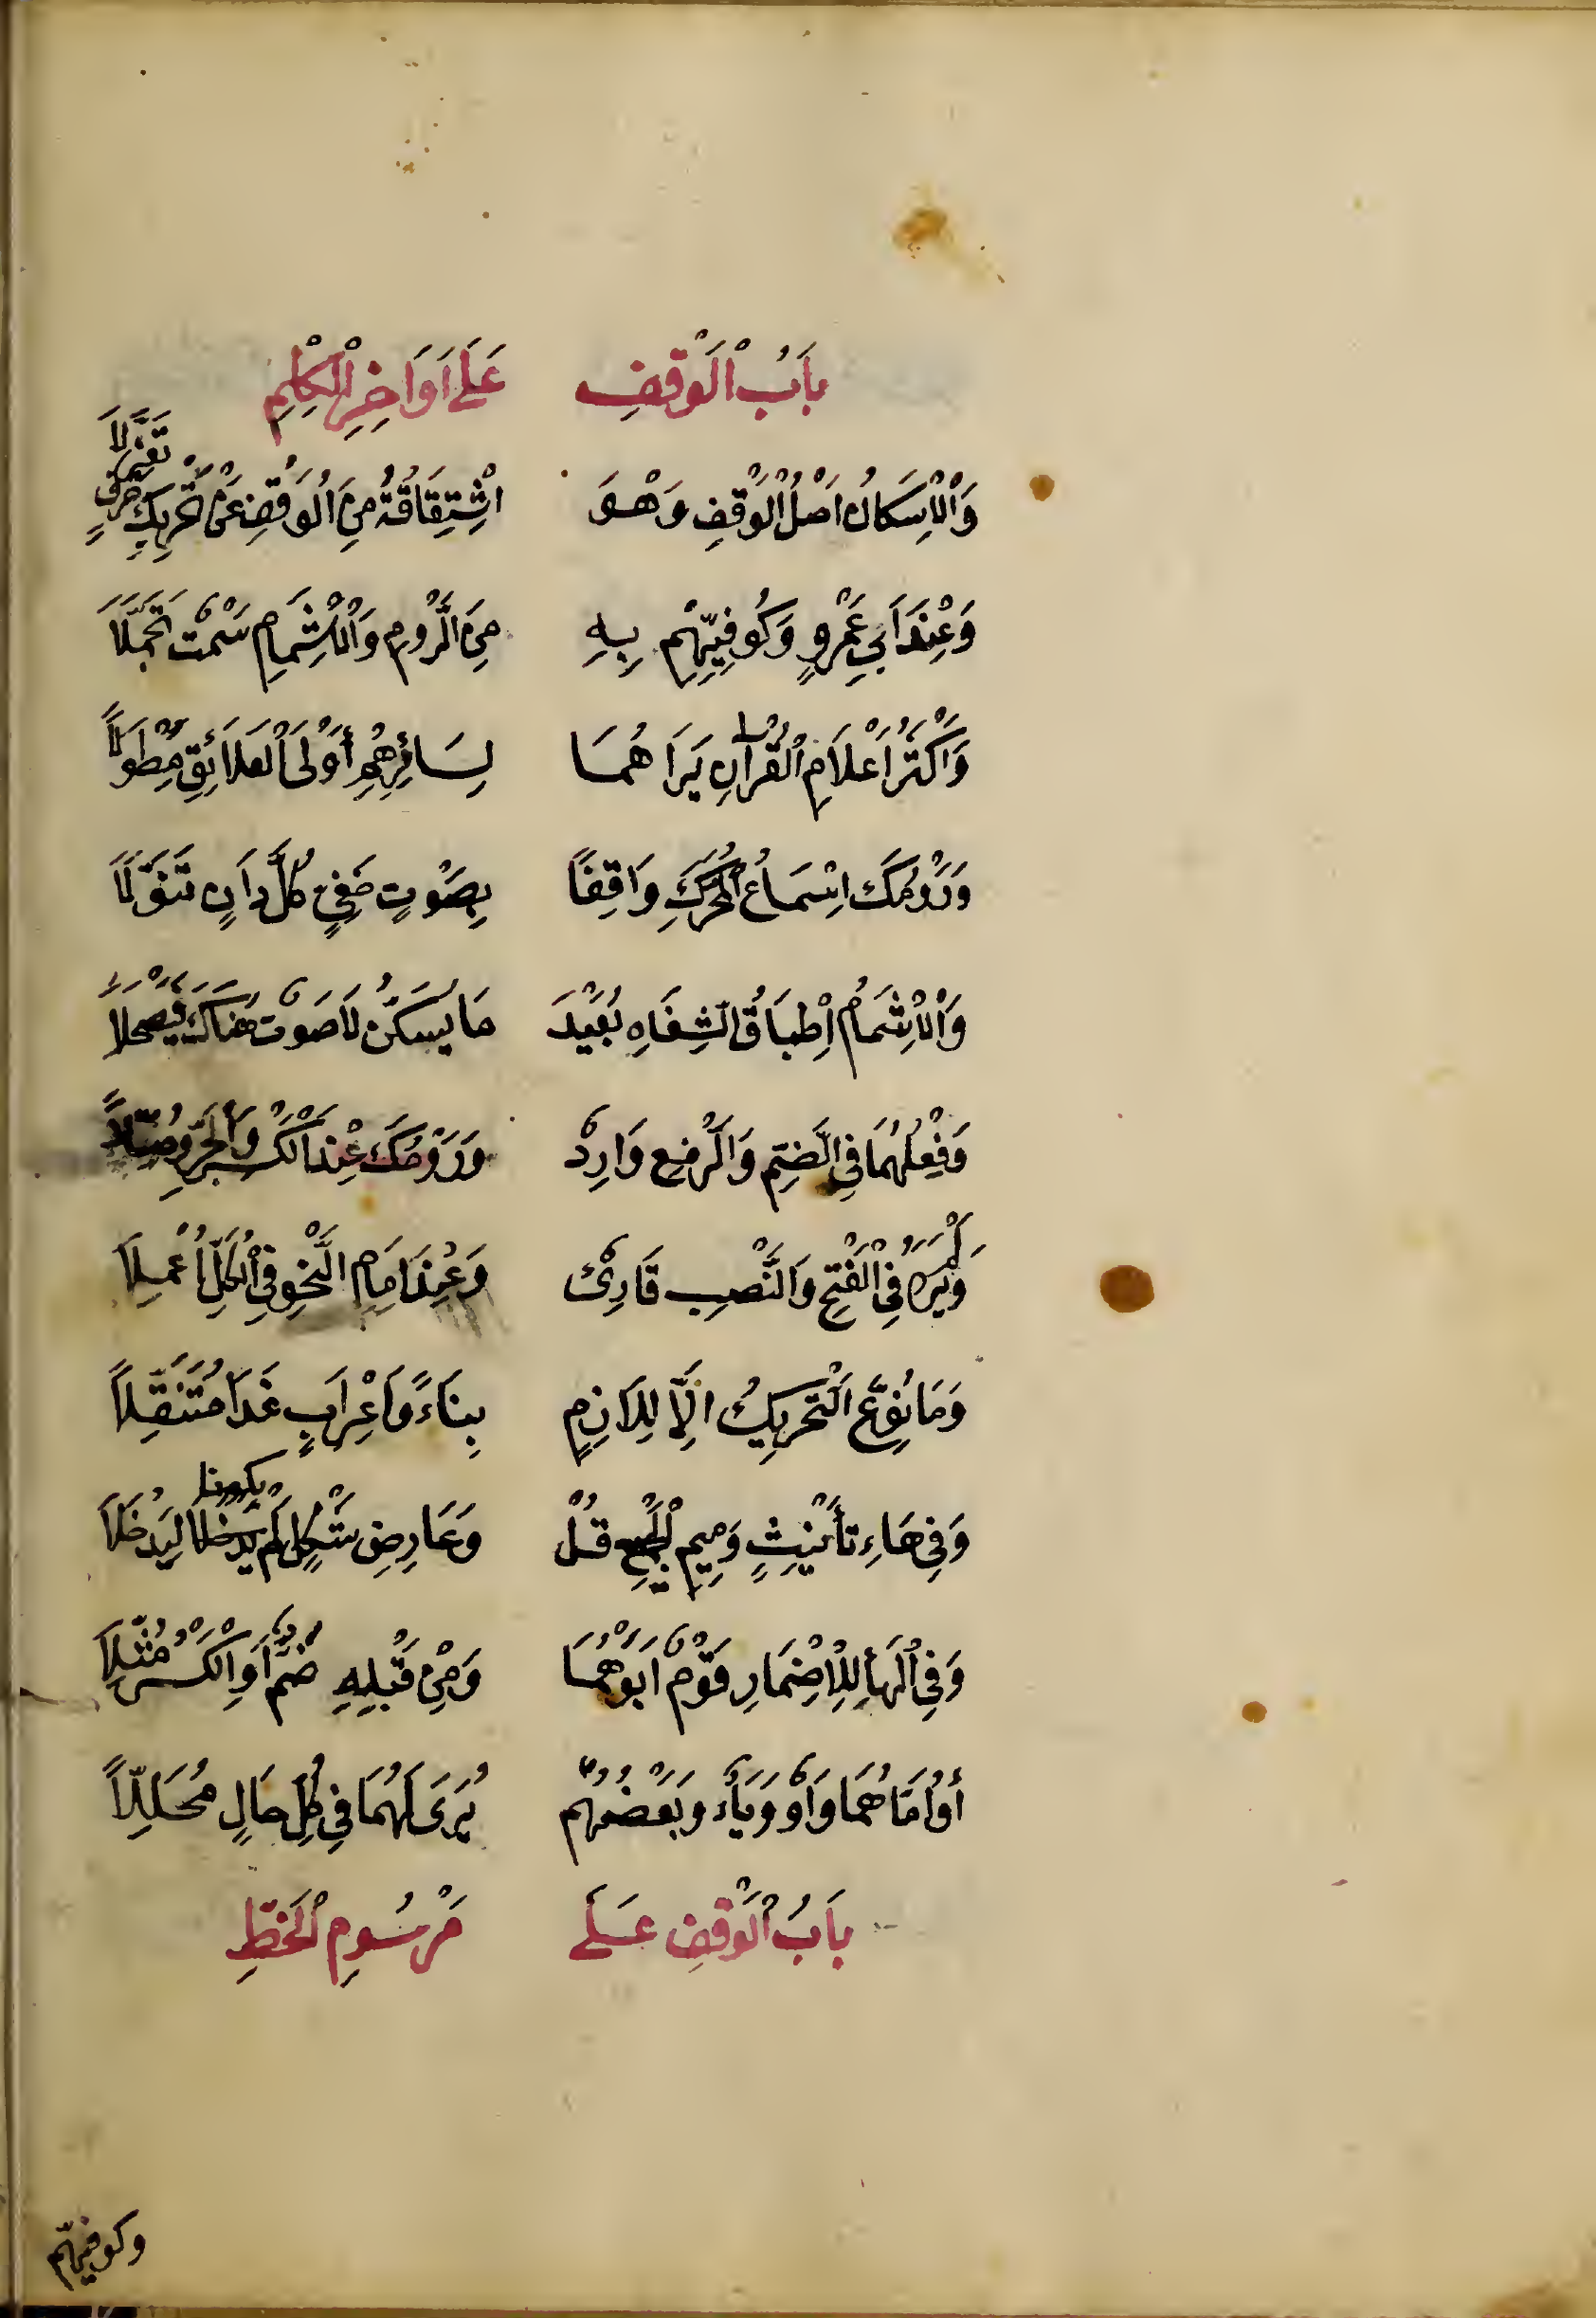 بَابُ الْوَقْفِ عَلَى أَوَاخِرِ الْكَلِمِ
وَالْاِسْكَانُ اَصْلُ الْوَقْفِ وَهْوَ اشْتِقَاقُهُ مِنَ الْوَقْفِ عَنْ تَحْرِيكِ حَرْفٍ تَعَزَّلَا
وَعِنْدَ اَبِي عَمْرٍو وَكُوفِيِّهِمْ بِهِ مِنَ الرَّوْمِ وَالْاِشْمَامِ سَمْتٌ تَجَمَّلَا
وَاَكْثَرُ اَعْلَامِ الْقُرْآنِ يَرَاهُمَا لِسَائِرِهِمْ أَوْلَى الْعَلَائِقِ مِطْوَلًا
وَرَوْمُكَ اِسْمَاعُ الْمُحَرَّكِ وَاقِفًا بِصَوْتٍ خَفِيٍّ كُلَّ دَانٍ تَنَوَّلَا
وَالْاِشْمَامُ إِطْبَاقُ الشِّفَاهِ بُعَيْدَ مَا يُسَكَّنُ لَا صَوْتٌ هُنَاكَ فَيَصْحَلَا
وَفِعْلُهُمَا فِي الضَّمِّ وَالرَّفْعِ وَارِدٌ وَرَوْمُكَ عِنْدَ الْكَسْرِ وَالْجَرِّ وُصِّلَا
وَلَمْ يَرَهُ فِي الْفَتْحِ وَالنَّصْبِ قَارِئٌ وَعِنْدَ اِمَامِ النَّحْوِ فِي الْكُلِّ اُعْمِلَا
وَمَا نُوِّعَ التَّحْرِيكُ اِلَّا لِلَازِمٍ بِنَاءً وَاِعْرَابٍ غَدَا مُتَنَقِّلًا
وَفِي هَاءِ تَأْنِيثٍ وَمِيمِ الْجَمِيعِ قُلْ وَعَارِضِ شَكْلٍ لَمْ يَدْخُلَا يكونا لِيَدْخُلَا
وَفِي الْهَاءِ لِلْاِضْمَارِ قَوْمٌ اَبَوْهُمَا وَمِنْ قَبْلِهِ ضَمٌّ اَوِ الْكَسْرُ مُثِّلَا
أَوُ امَّا هُمَا وَاوٌ وَيَاءٌ وَبَعْضُهُمْ يُرَى لَهُمَا فِي كُلِّ حَالٍ مُحَلِّلًا
بَابُ الْوَقْفِ عَلَى مَرْسُومِ الْخَطِّ
وكوفيهم